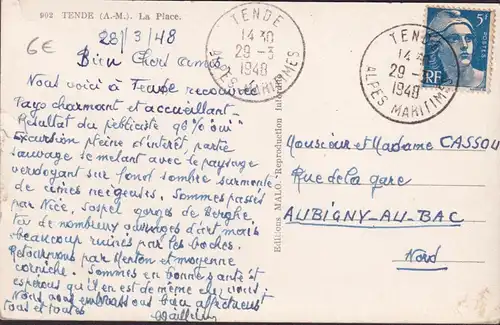 992 TENDE (A.-M.). La Place.
6€
28/3/48
Bien Chers amis
Nous voici à Tende recouvrée
Pays charmant et accueillant -
Résultat du plébiscite 98% oui
Excursion pleine d'intérêt, partie
sauvage se melant avec le paysage
verdoyant sur fond sombre surmonté
de cimes neigeuses. Sommes passés
par Nice, Sospel gorges de
de nombreux ouvrages d'art mais
beaucoup ruinés par les boches.
Retournons par Menton et moyenne
corniche. Sommes en bonne santé et
espérons qu'il en est de même chez vous.
Nous vous embrassons bien affectueust
tous et toutes
Editions MALO. - Reproduction Interdite
TENDE
14 30
29 - 3
1948
ALPES MARITIMES
TENDE
14 30
29 - 3
1948
ALPES MARITIMES
5F
RF
Monsieur et Madame CASSOU
Rue de la gare
AUBIGNY-AU-BAC
Nord